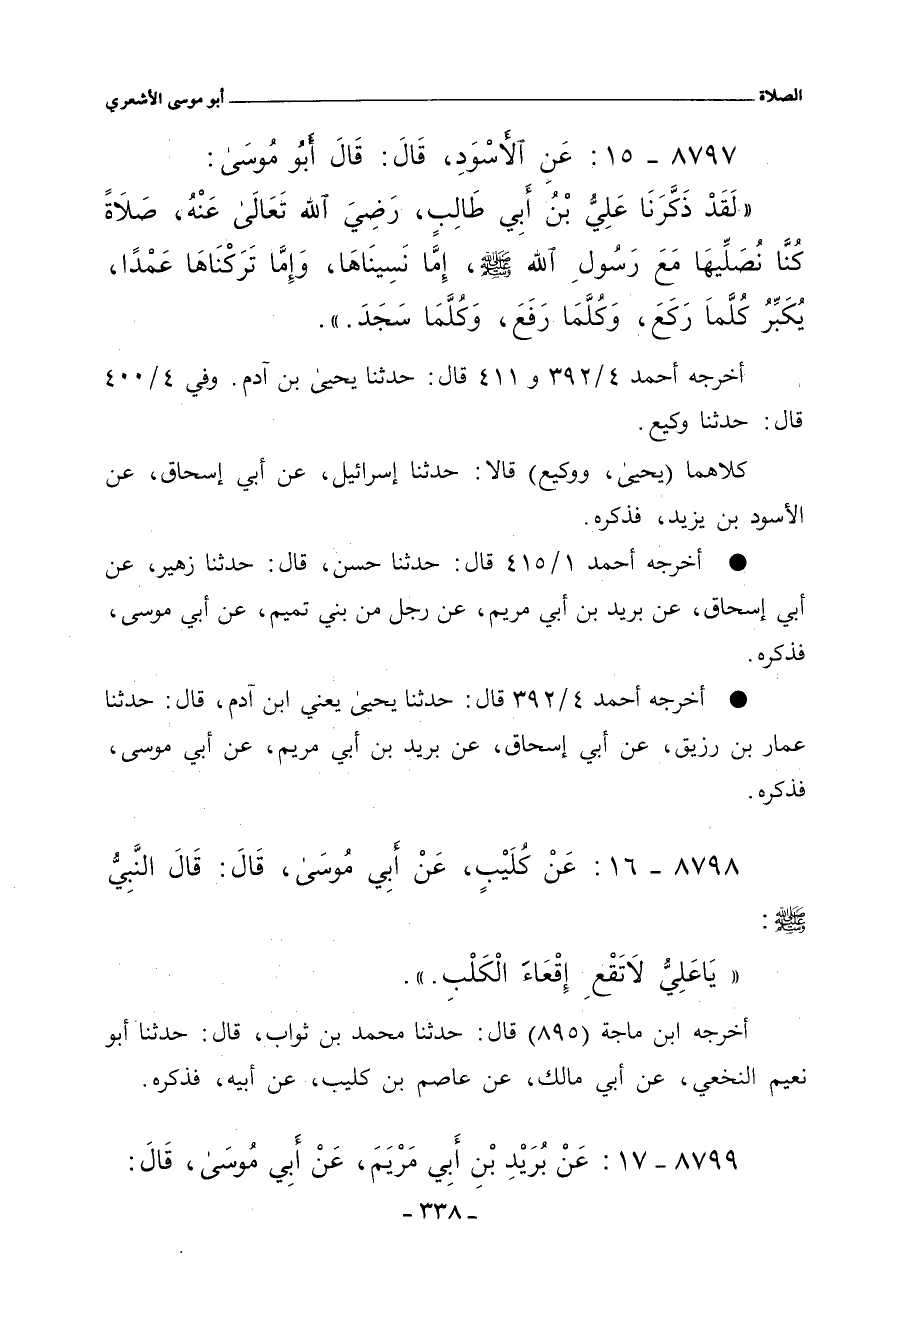 الصلاة ــــــــــــ أبو موسى الأشعري
٨٧٩٧ ـ ١٥ : عَنِ ٱلْأَسْوَدِ، قَالَ: قَالَ أَبُو مُوسَىٰ:
«لَقَدْ ذَكَّرَنَا عَلِيُّ بْنُ أَبِي طَالِبٍ، رَضِيَ ٱللَّه تَعَالَىٰ عَنْهُ، صَلَاةً
كُنَّا نُصَلِّيهَا مَعَ رَسُولِ ٱللَّه ﷺ، إِمَّا نَسِينَاهَا، وَإِمَّا تَرَكْنَاهَا عَمْدًا،
يُكَبِّرُ كُلَّمَا رَكَعَ، وَكُلَّمَا رَفَعَ، وَكُلَّمَا سَجَدَ.».
أخرجه أحمد ٤/٣٩٢ و ٤١١ قال: حدثنا يحيىٰ بن آدم. وفي ٤/٤٠٠
قال: حدثنا وكيع.
كلاهما (يحيىٰ، ووكيع) قالا: حدثنا إسرائيل، عن أبي إسحاق، عن
الأسود بن يزيد، فذكره.
● أخرجه أحمد ٤١٥/١ قال: حدثنا حسن، قال: حدثنا زهير، عن
أبي إسحاق، عن بريد بن أبي مريم، عن رجل من بني تميم، عن أبي موسى،
فذكره.
● أخرجه أحمد ٤/٣٩٢ قال: حدثنا يحيىٰ يعني ابن آدم، قال: حدثنا
عمار بن رزيق، عن أبي إسحاق، عن بريد بن أبي مريم، عن أبي موسى،
فذكره.
٨٧٩٨ ـ ١٦ : عَنْ كُلَيْبٍ، عَنْ أَبِي مُوسَىٰ، قَالَ: قَالَ النَّبِيُّ
ﷺ:
« يَاعَلِيُّ لَاتَقْعِ إِقْعَاءَ الْكَلْبِ.».
أخرجه ابن ماجة (٨٩٥) قال: حدثنا محمد بن ثواب، قال: حدثنا أبو
نعيم النخعي، عن أبي مالك، عن عاصم بن كليب، عن أبيه، فذكره.
٨٧٩٩ ـ ١٧ : عَنْ بُرَيْدِ بْنِ أَبِي مَرْيَمَ، عَنْ أَبِي مُوسَىٰ، قَالَ:
ـ ٣٣٨ ـ